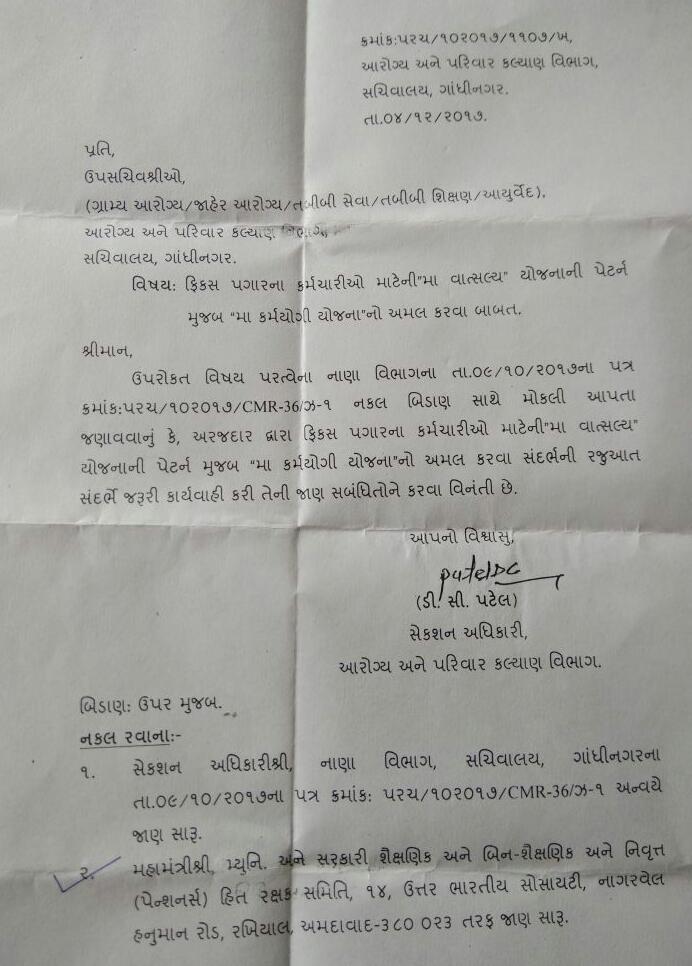 ક્રમાંક:પરચ/૧૦૨૦૧૭/૧૧૦૭/ખ,
આરોગ્ય અને પરિવાર કલ્યાણ વિભાગ,
સચિવાલય, ગાંધીનગર.
તા.૦૪/૧૨/૨૦૧૭.
પ્રતિ,
ઉપસચિવશ્રીઓ,
(ગ્રામ્ય આરોગ્ય/જાહેર આરોગ્ય/તબીબી સેવા/તબીબી શિક્ષણ/આયુર્વેદ).
આરોગ્ય અને પરિવાર કલ્યાણ વિભાગ,
સચિવાલય, ગાંધીનગર.
વિષય: ફિકસ પગારના કર્મચારીઓ માટેની"મા વાત્સલ્ય" યોજનાની પેટર્ન
મુજબ "મા કર્મયોગી યોજના"નો અમલ કરવા બાબત.
શ્રીમાન,
ઉપરોકત વિષય પરત્વેના નાણા વિભાગના તા.૦૯/૧૦/૨૦૧૭ના પત્ર
ક્રમાંક:પરચ/૧૦૨૦૧૭/CMR-36/ઝ-૧ નકલ બિડાણ સાથે મોકલી આપતા
જણાવવાનું કે, અરજદાર દ્વારા ફિકસ પગારના કર્મચારીઓ માટેની"મા વાત્સલ્ય"
યોજનાની પેટર્ન મુજબ "મા કર્મયોગી યોજના"નો અમલ કરવા સંદર્ભની રજુઆત
સંદર્ભે જરૂરી કાર્યવાહી કરી તેની જાણ સબંધિતોને કરવા વિનંતી છે.
આપનો વિશ્વાસુ,
patelDC
(ડી. સી. પટેલ)
સેકશન અધિકારી,
આરોગ્ય અને પરિવાર કલ્યાણ વિભાગ.
બિડાણ: ઉપર મુજબ.
નકલ રવાના:-
૧. સેકશન અધિકારીશ્રી, નાણા વિભાગ, સચિવાલય, ગાંધીનગરના
તા.૦૯/૧૦/૨૦૧૭ના પત્ર ક્રમાંક: પરચ/૧૦૨૦૧૭/CMR-36/ઝ-૧ અન્વયે
જાણ સારૂ.
૨. મહામંત્રીશ્રી, મ્યુનિ. અને સરકારી શૈક્ષણિક અને બિન-શૈક્ષણિક અને નિવૃત્ત
(પેન્શનર્સ) હિત રક્ષક સમિતિ, ૧૪, ઉત્તર ભારતીય સોસાયટી, નાગરવેલ
હનુમાન રોડ, રખિયાલ, અમદાવાદ-૩૮૦ ૦૨૩ તરફ જાણ સારૂ.